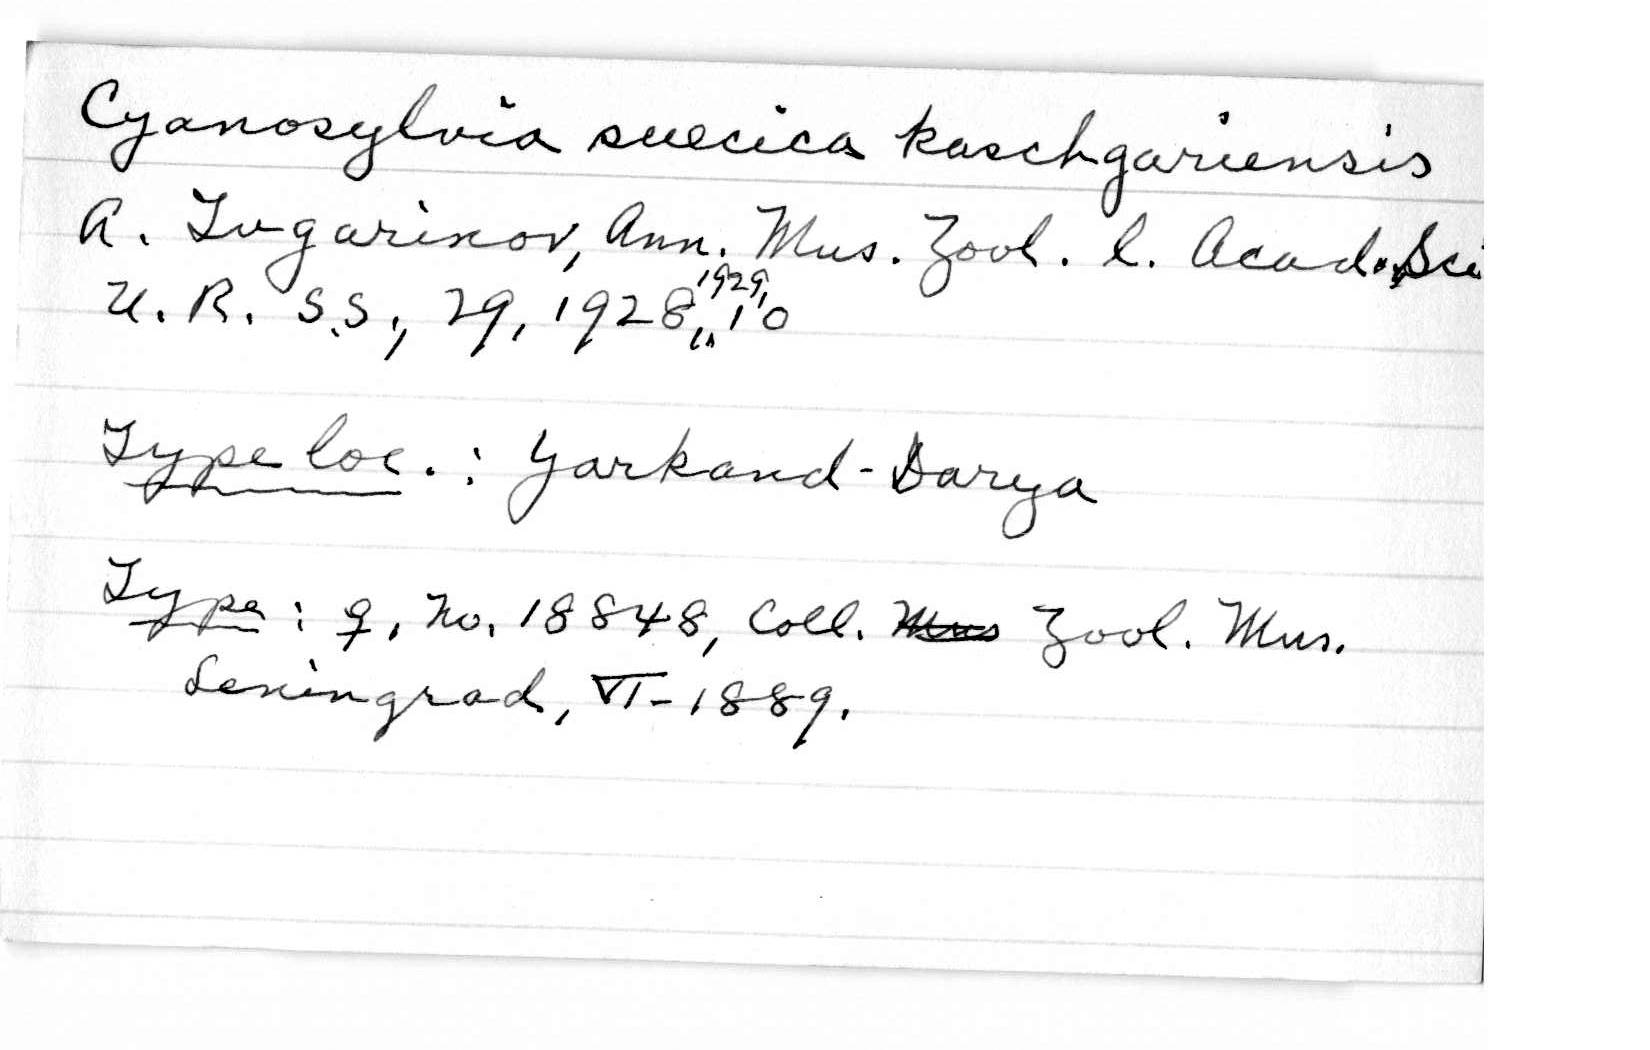 Cyanosylvia suecica kaschgariensis
A. Tugarinov, Ann. Mus. Zool. l. Acad. Sci
U. R. S.S., 29, 1928, 1929, 10
Type loc. : Yarkand-Darya
Type : ♀, No. 18848, Coll. Mus Zool. Mus.
Leningrad, VI-1889.